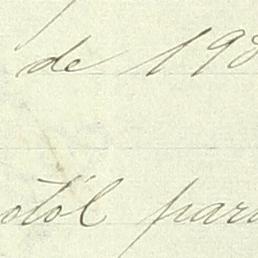 de 190
otól para